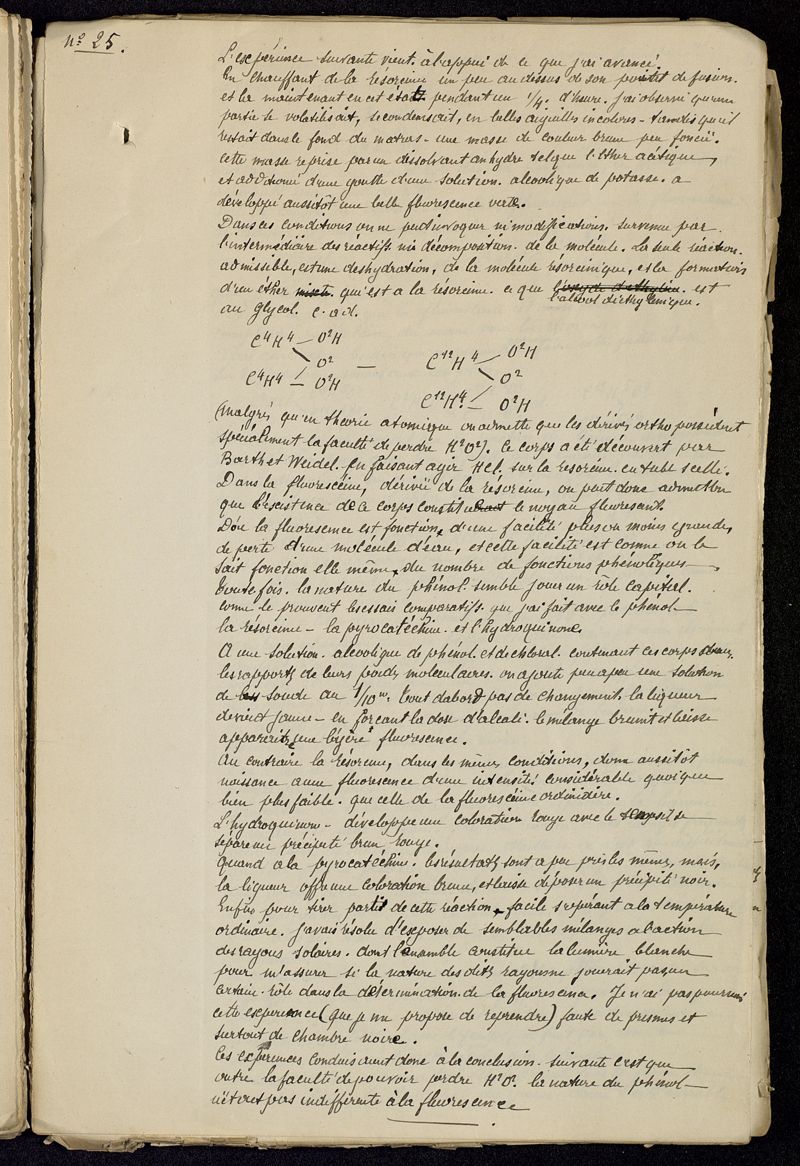 nº 25.
L'expérience suivante vient à l'appui de ce que j'ai avancé.
En chauffant de la résorcine un peu au dessus de son point de fusion.
et la maintenant en cet état pendant un 1/4. d'heure. j'ai observé qu'une
partie se volatilisait, se condensait, en belles aiguilles incolores - tandis qu'il
restait dans le fond du matras - une masse de couleur brune peu foncée.
cette masse reprise par un dissolvant anhydre tel que l'Ether acétique,
et additionné d'une goutte d'une solution. alcoolique de potasse. a
développé aussitôt une belle fluorescence verte.
Dans ces conditions on ne peut invoquer ni modifications. survenue par
l'intermédiaire des réactifs ni décomposition. de la molécule. La seule réaction
admissible, est une deshydration, de la molécule résorcinique, et la formation
d'un éther mixte. qui est a la résorcine. ce que l'oxyde d'éthylène. est
l'alcool diéthylénique.
au glycol. c.a.d.
C⁴H⁴ - O²H C¹²H⁴ - O²H
O² — O²
C⁴H⁴ - O²H C¹²H⁴ - O²H
(Malgré qu'en theorie atomique on admette que les dérivés ortho possèdent
spécialement la faculté de perdre H²O²). Ce corps a été découvert par
Barth et Weidel. En faisant agir HCl. sur la resorcine. en tube scellé.
Dans la fluorescéine, dérivée de la résorcine, on peut donc admettre
que l'éxistence de ce corps constitue le noyau fluorescent.
D'où la fluorescence est fonction, d'une facilité plus ou moins grande,
de perte d'une molécule d'eau, et cette facilité est comme on le
sait fonction elle même, du nombre de fonctions phénoliques
toute fois. la nature du phénol. semble jouer un rôle capital.
come le prouvent les essais comparatifs. que j'ai fait avec le phénol -
la résorcine - la pyrocatéchine. et l'hydroquinone.
A une solution. alcoolique de phénol. et de chloral. contenant ces corps dans
les rapports de leurs poids moleculaires. on ajoute peu a peu une solution
de soude au 1/10 m. tout d'abord pas de changement. la liqueur
devient jaune - en forçant la dose d'alcali. le mélange brunit et laisse
apparaitre une légère fluorescence.
Au contraire la résorcine, dans les mêmes conditions, donne aussitôt
naissance a une fluorescence d'une intensité considérable quoique
bien plus faible. que celle de la fluorescéine ordinidire.
L'hydroquinon - développe une coloration rouge avec le temps il se
sépare un précipité brun rouge.
Quand a la pyrocatéchine. les résultats sont a peu près les mêmes, mais,
la liqueur offre une coloration brune, et laisse déposer un précipité noir.
Enfin pour tirer parti de cette réaction, facile s'opérant a la température
ordinaire. j'avais résolu d'exposer de semblables mélanges a l'action
des rayons solaires. dont l'ensemble constitue la lumière blanche
pour m'assurer si la nature des dits rayons ne jouerait pas un
certain rôle dans la détermination. de la fluorescence. Je n'ai pas poursuivi
cette expérience (que je me propose de reprendre) faute de prismes et
surtout de chambre noire.
Ces expériences conduisaient donc à la conclusion. suivante c'est que
outre la faculté de pouvoir perdre H²O². la nature du phénol -
n'etait pas indifférente à la fluorescence